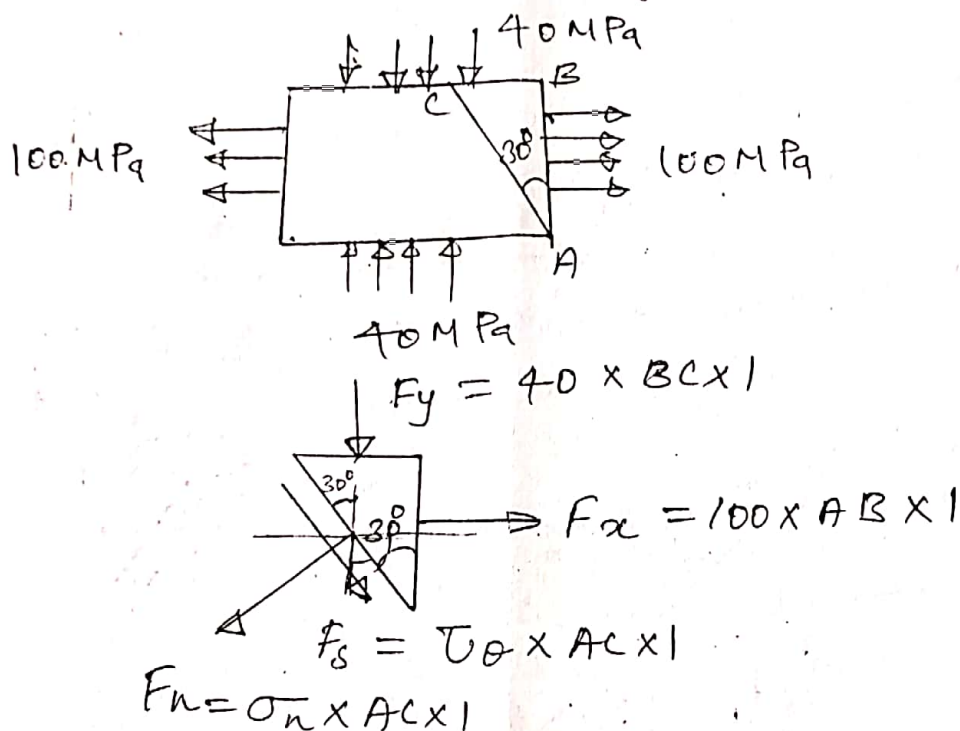 40 MPa
B
C
100 MPa
30°
100 MPa
A
40 MPa
Fy = 40 × BC × 1
30°
30°
Fx = 100 × AB × 1
Fs = τθ × AC × 1
Fn = σn × AC × 1